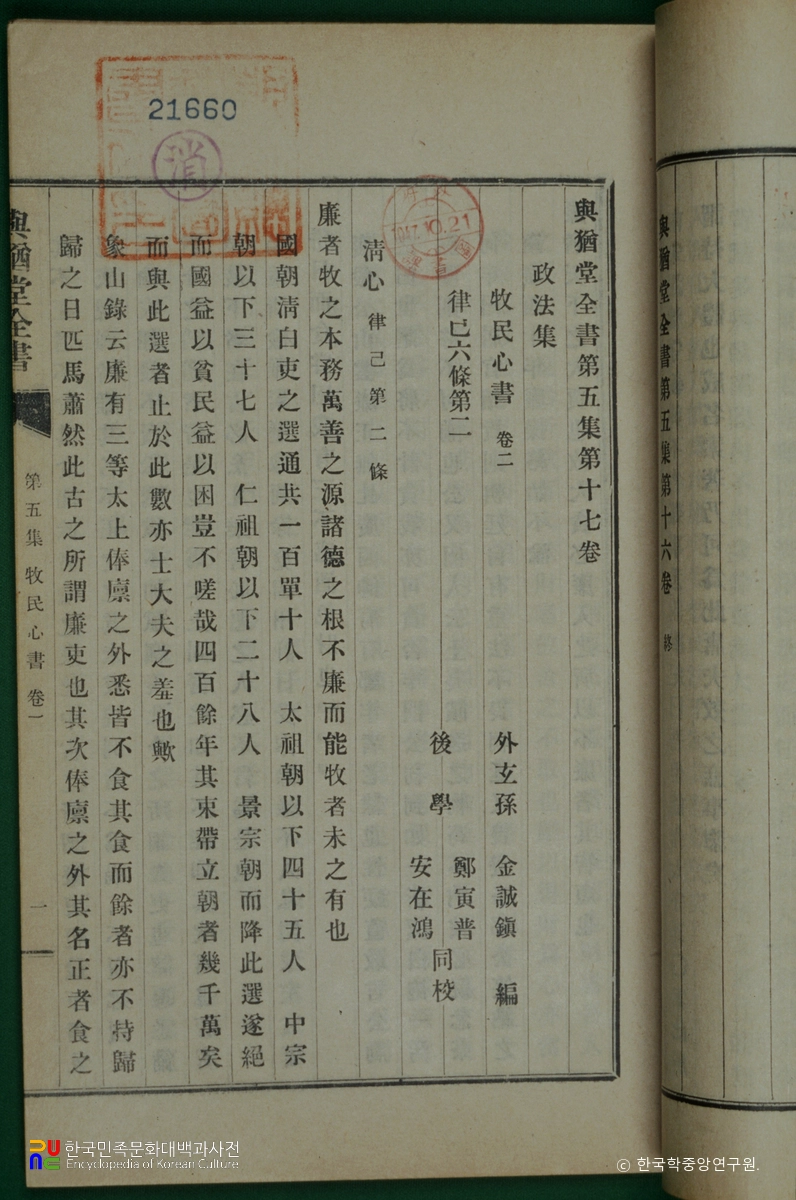 與猶堂全書第五集第十六卷 終
21660
消
1017.10.21
與猶堂全書第五集第十七卷
政法集
牧民心書 卷二
外玄孫 金誠鎭 編
律己六條第二
後學 鄭寅普 安在鴻 同校
淸心 律己第二條
廉者牧之本務萬善之源諸德之根不廉而能牧者未之有也
國朝淸白吏之選通共一百單十人 太祖朝以下四十五人 中宗
朝以下三十七人 仁祖朝以下二十八人 景宗朝而降此選遂絕
而國益以貧民益以困豈不嗟哉四百餘年其束帶立朝者幾千萬矣
而與此選者止於此數亦士大夫之羞也歟
象山錄云廉有三等太上俸廩之外悉皆不食其食而餘者亦不持歸
歸之日匹馬蕭然此古之所謂廉吏也其次俸廩之外其名正者食之
與猶堂全書
第五集 牧民心書 卷一
一
한국민족문화대백과사전
Encyclopedia of Korean Culture
© 한국학중앙연구원.